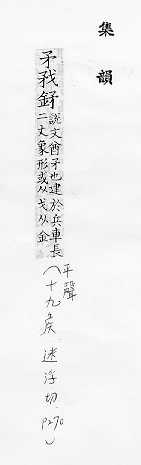 集韻
矛𢦧鉾說文酋矛也建於兵車長
二丈象形或从戈从金
(平聲
十九矦 迷浮切 P270)